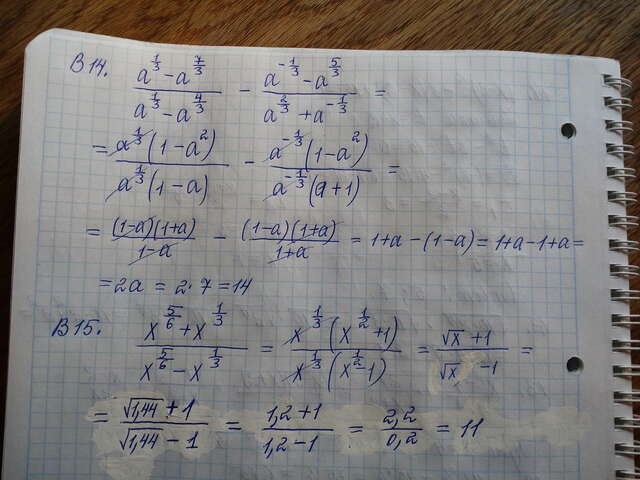 В14. (a^(1/3) - a^(7/3))/(a^(1/3) - a^(4/3)) - (a^(-1/3) - a^(5/3))/(a^(2/3) + a^(-1/3)) =
= (a^(1/3)(1-a^2))/(a^(1/3)(1-a)) - (a^(-1/3)(1-a^2))/(a^(-1/3)(a+1)) =
= ((1-a)(1+a))/(1-a) - ((1-a)(1+a))/(1+a) = 1+a-(1-a) = 1+a-1+a =
= 2a = 2·7 = 14
В15. (x^(5/6) + x^(1/3))/(x^(5/6) - x^(1/3)) = (x^(1/3)(x^(1/2)+1))/(x^(1/3)(x^(1/2)-1)) = (√x + 1)/(√x - 1) =
= (√1,44 + 1)/(√1,44 - 1) = (1,2+1)/(1,2-1) = 2,2/0,2 = 11